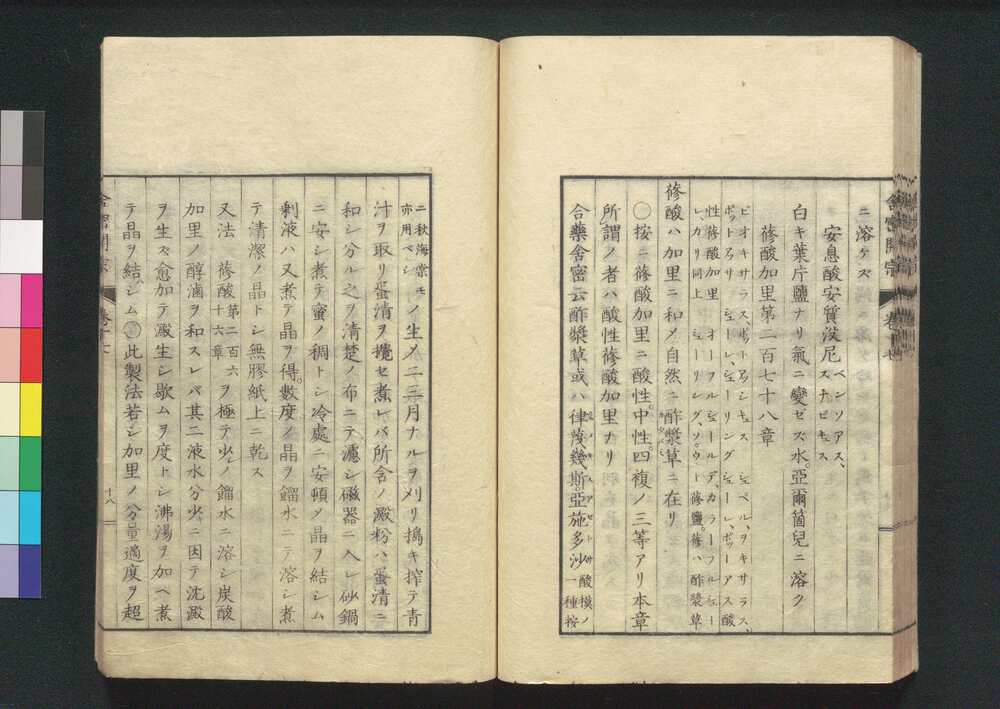 ニ溶ケズ
安息酸安質没尼ベンソアス、
白キ葉片鹽ナリ氣ニ變ゼズ水亞爾箇兒ニ溶ク
蓚酸加里第二百七十八章
蓚酸ハ加里ニ和メ自然ニ酢漿草ニ在リ
〇按ニ蓚酸加里ニ酸性中性四複ノ三等アリ本章
所謂ノ者ハ酸性蓚酸加里ナリ
合藥舍密云酢漿草或ハ律茂幾斯亞施多沙酸模ノ一種按
ニ秋海棠モ亦用ベシノ生ノ二三月ナルヲ刈リ搗キ搾テ青
汁ヲ取リ蛋清ヲ攪セ煮レバ所含ノ澱粉ハ蛋清ニ
和シ分ル之ヲ清楚ノ布ニテ濾シ磁器ニ入レ砂鍋
ニ安シ煮テ蜜ノ稠トシ冷處ニ安頓メ晶ヲ結シム
剰液ハ又煮テ晶ヲ得數度ノ晶ヲ餾水ニテ溶シ煮
テ清潔ノ晶トシ無膠紙上ニ乾ス
又法 蓚酸第二百六十六章ヲ極テ少ノ餾水ニ溶シ炭酸
加里ノ醇滷ヲ和スレバ其二液水分少ニ因テ沈澱
ヲ生ス愈加テ澱生シ歇ムヲ度トシ沸湯ヲ加ヘ煮
テ晶ヲ結シム〇此製法若シ加里ノ分量適度ヲ超
十八